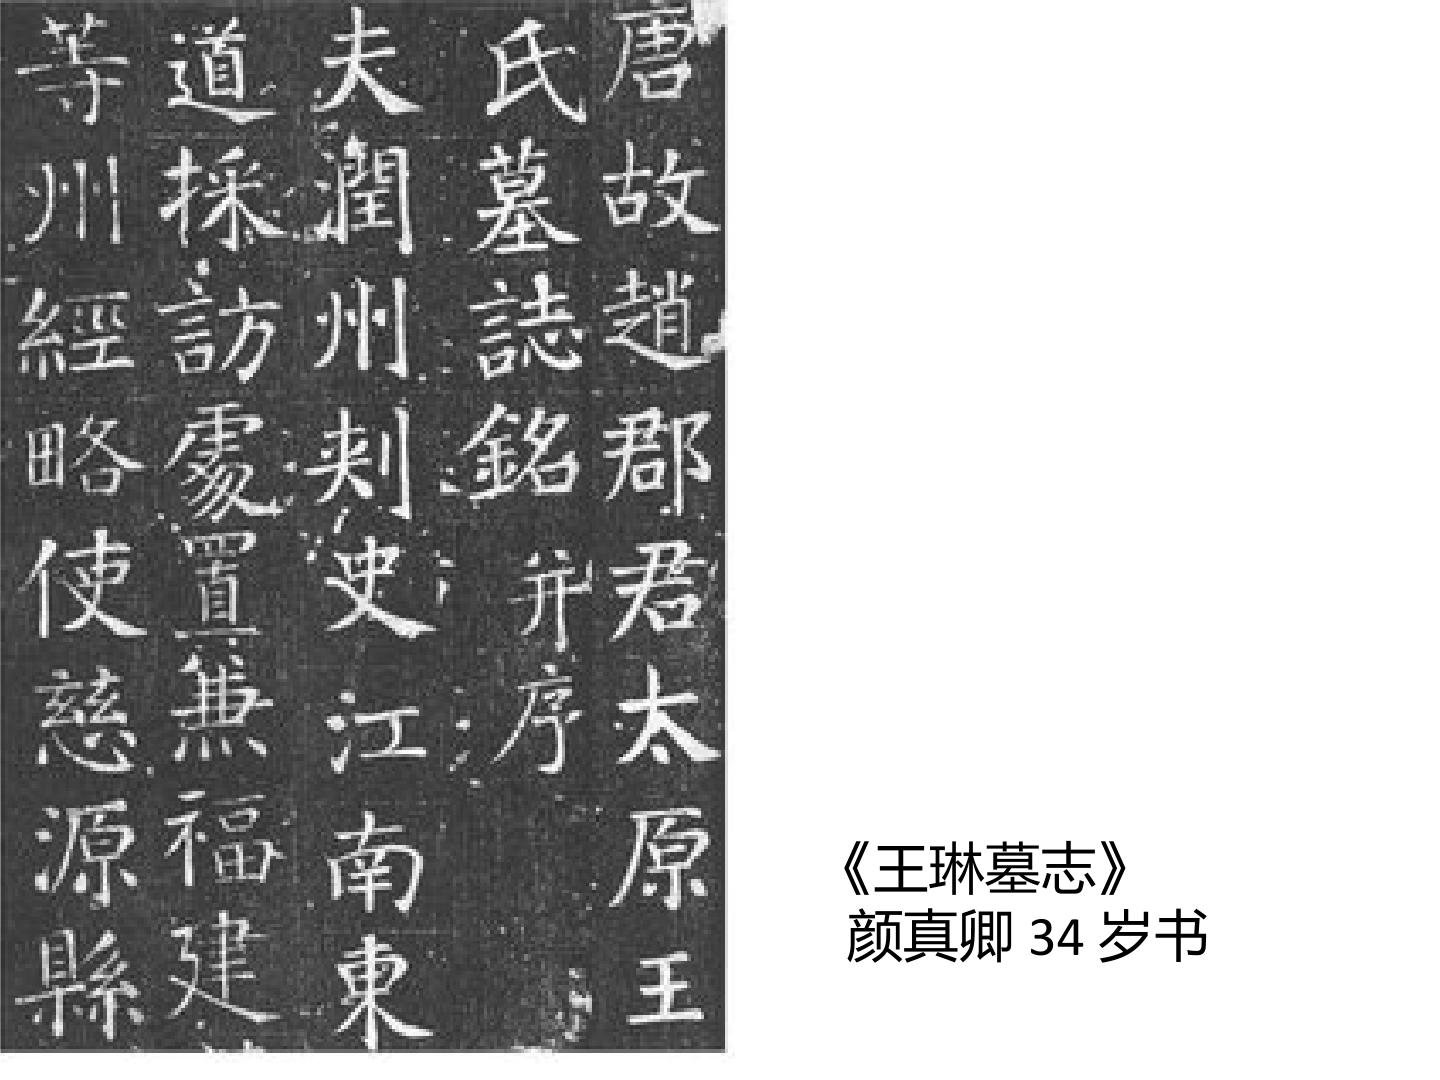 唐故趙郡君太原王
氏墓誌銘 并序
夫潤州刺史江南東
道採訪處置兼福建
等州經略使慈源縣
《王琳墓志》
颜真卿 34 岁书